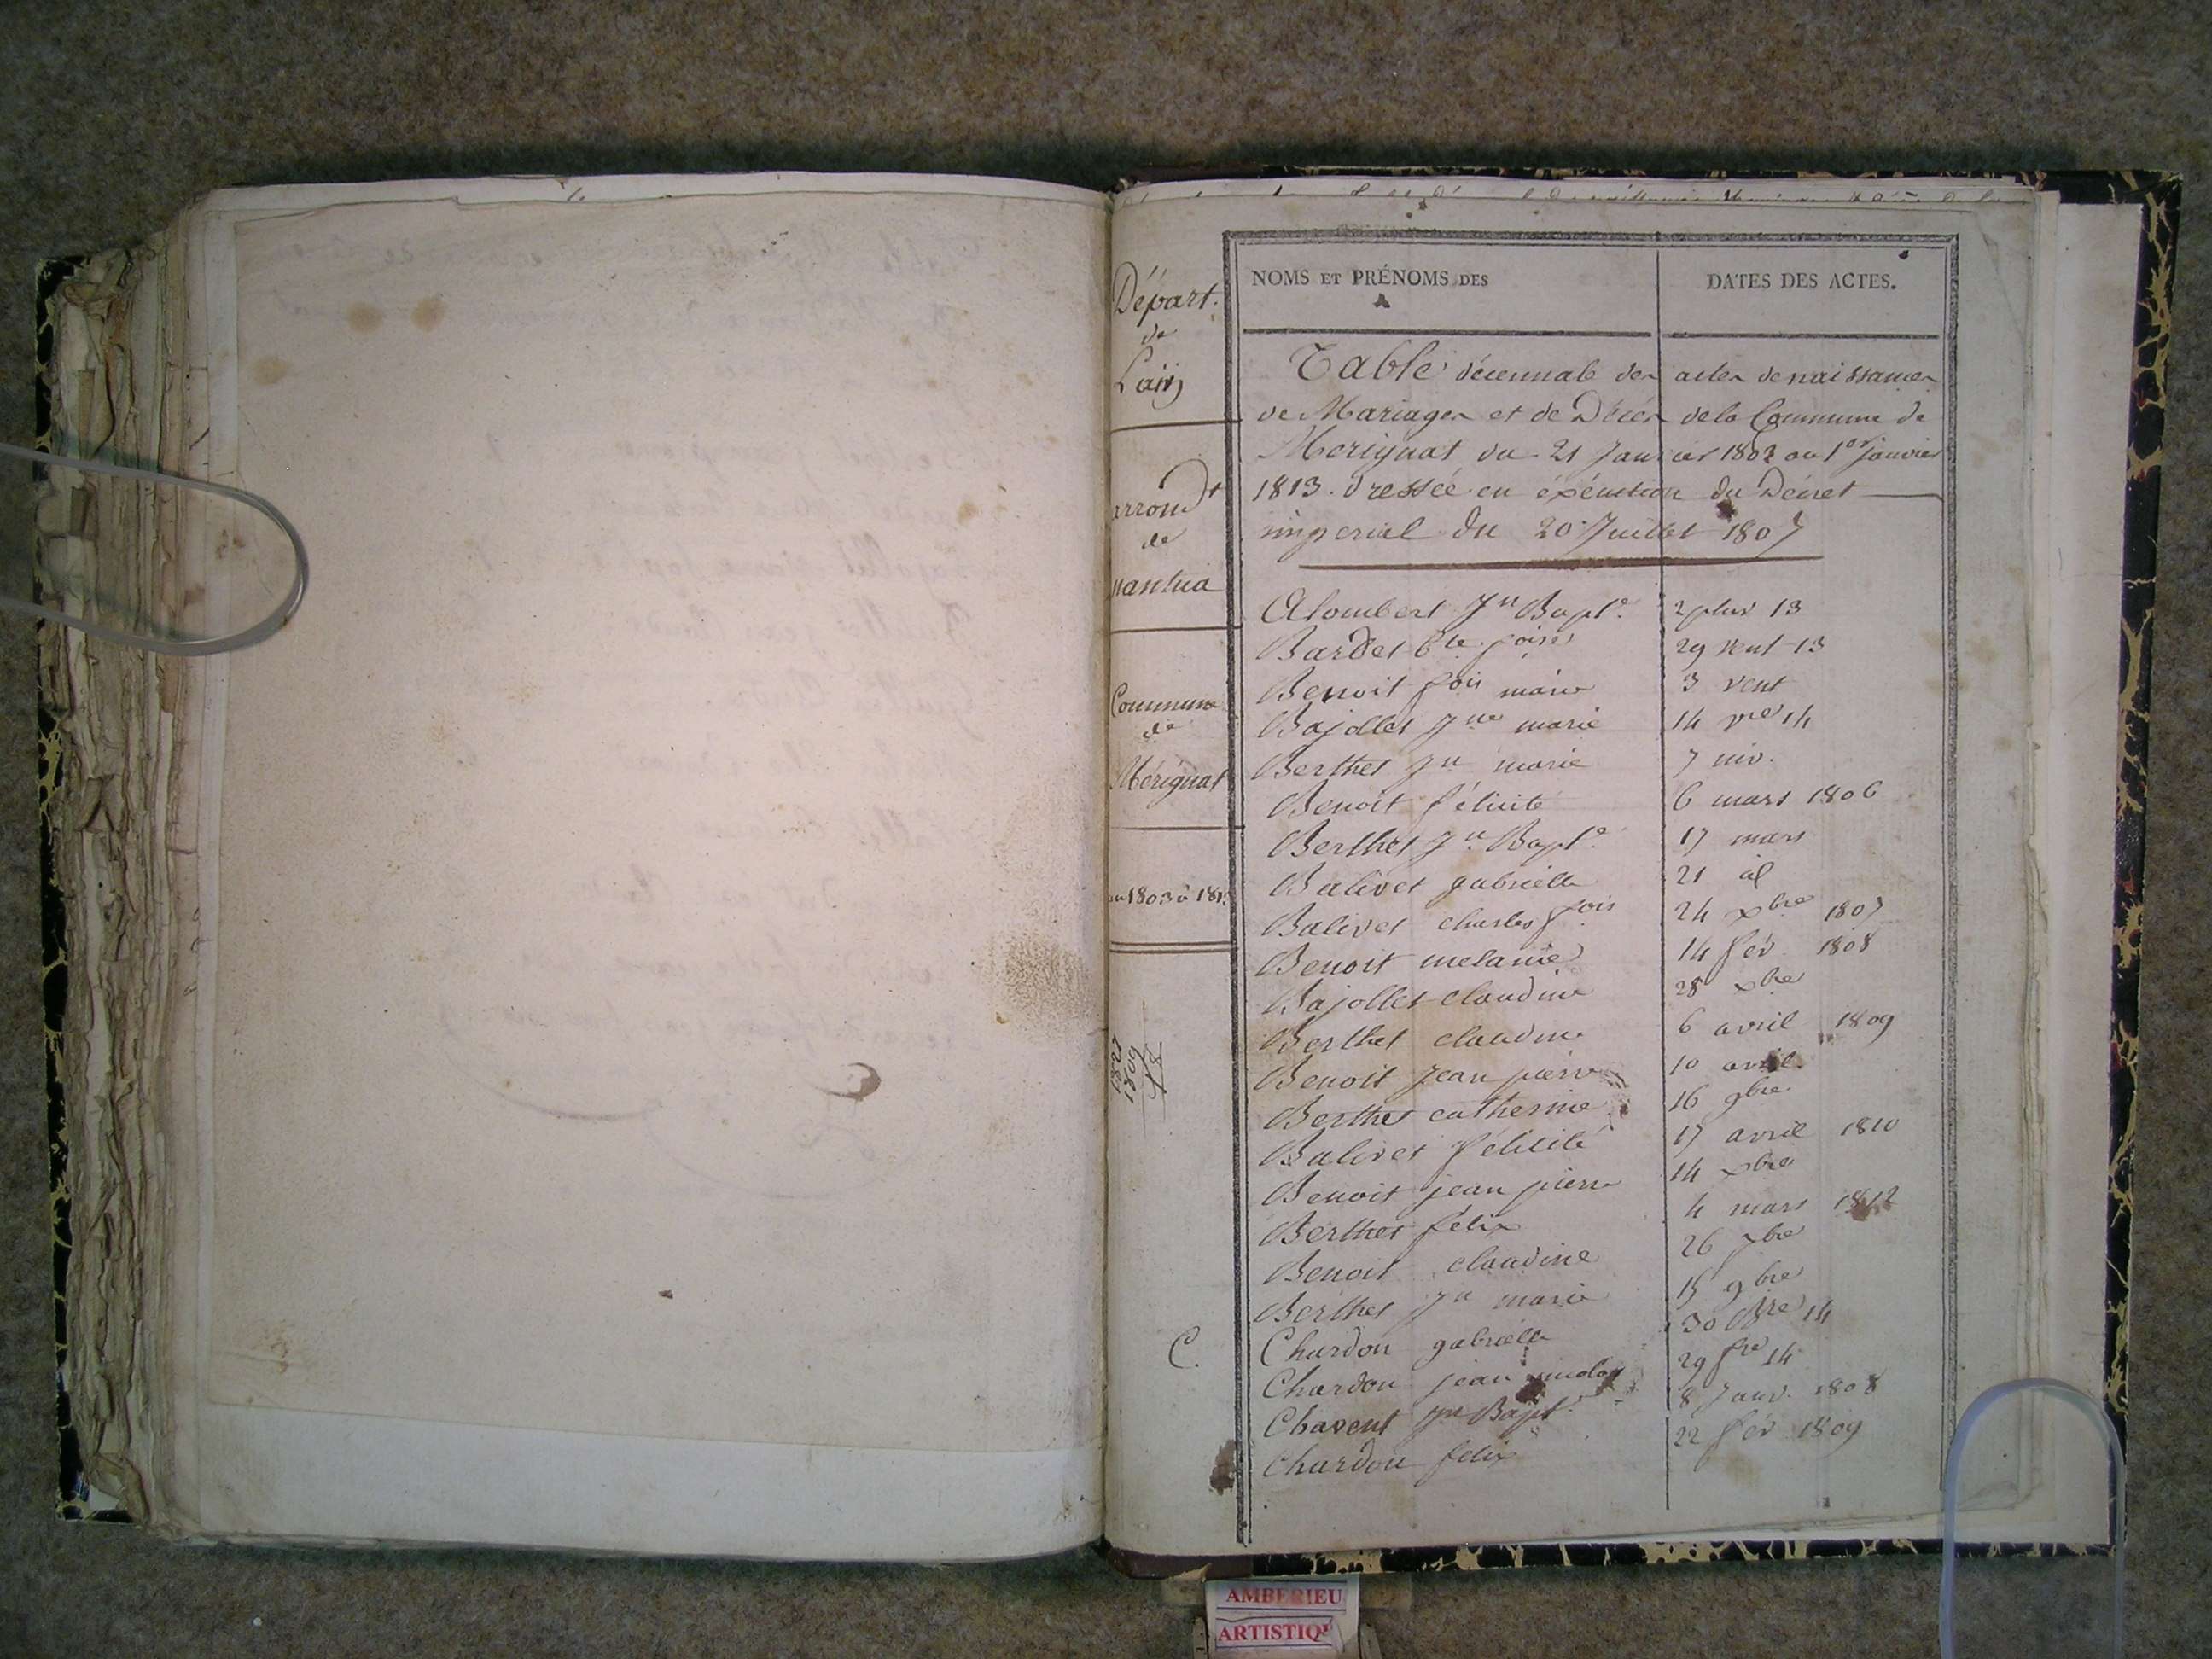 Départ.
de
L'ain
arrond^t
de
nantua
Commune
de
Mérignat
an 1803 à 181
1827
1809
18
C.
NOMS ET PRÉNOMS DES
DATES DES ACTES.
Table décennale des actes de naissances
de Mariages et de Décès de la Commune de
Merignat du 21 Janvier 1803 au 1er janvier
1813. dressée en éxécution du Décret
impérial du 20 Juillet 1807
Alombert Jn Bapte 2 pluv 13
Bardet 29 vent 13
Benoit fois marie 3 vent
Bajollet Jne marie 14 vre 14
Berthet Jn marie 7 niv.
Benoit félicité 6 mars 1806
Berthet Jn Bapte 17 mars
Balivet gabrielle 21 al
Balivet charles fois 24 xbre 1807
Benoit melanie 14 fév 1808
Bajollet claudine 28 xbre
Berthet claudine 6 avril 1809
Benoit jean pierre 10 avril
Berthet catherine 16 9bre
Balivet félicité 17 avril 1810
Benoit jean pierre 14 xbre
Berthet félix 4 mars 1812
Benoit claudine 26 7bre
Berthet Jn marie 15 9bre
Chardon gabrielle 30 14
Chardon jean 29 fre 14
Chavent Jn Bapt 8 Janv. 1808
Chardon felix 22 fév 1809
AMBERIEU
ARTISTIQ